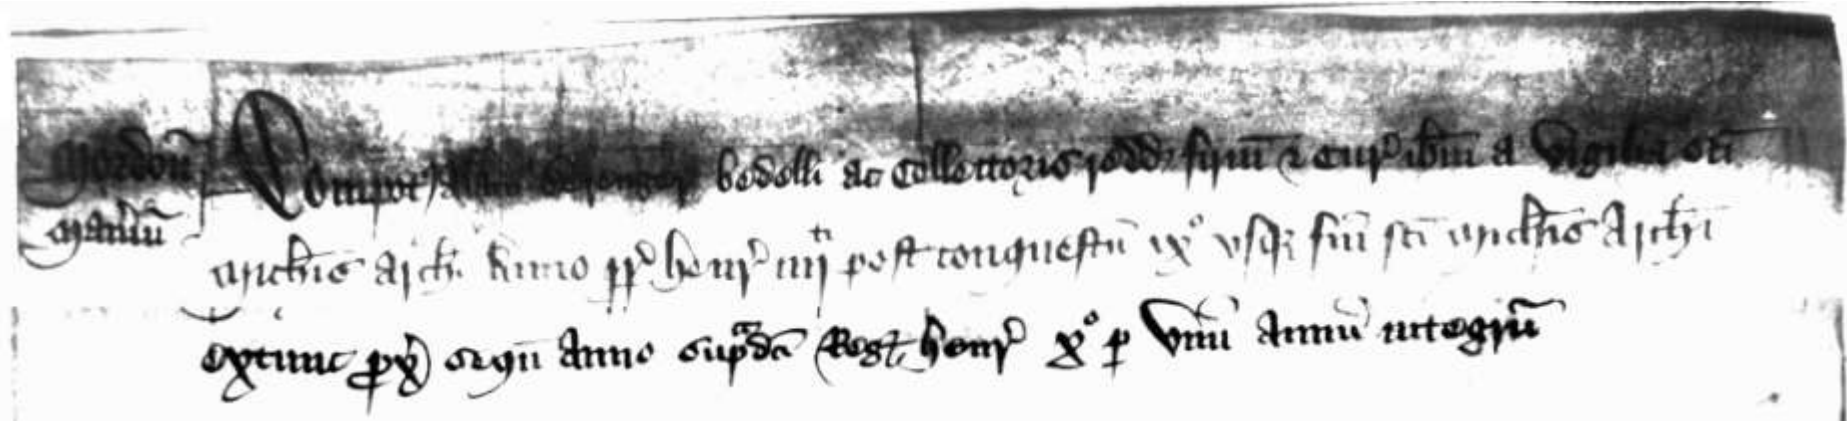 Mordon Compot bedelli ac Collectoris redd firm & cur ibm a Vigilia sci
Maner
michis arch anno rr henr iiijti post conquestu ix° usq festu sci michis Archi
extunc px sequ anno supradco Reg henr x° p unu annu integru